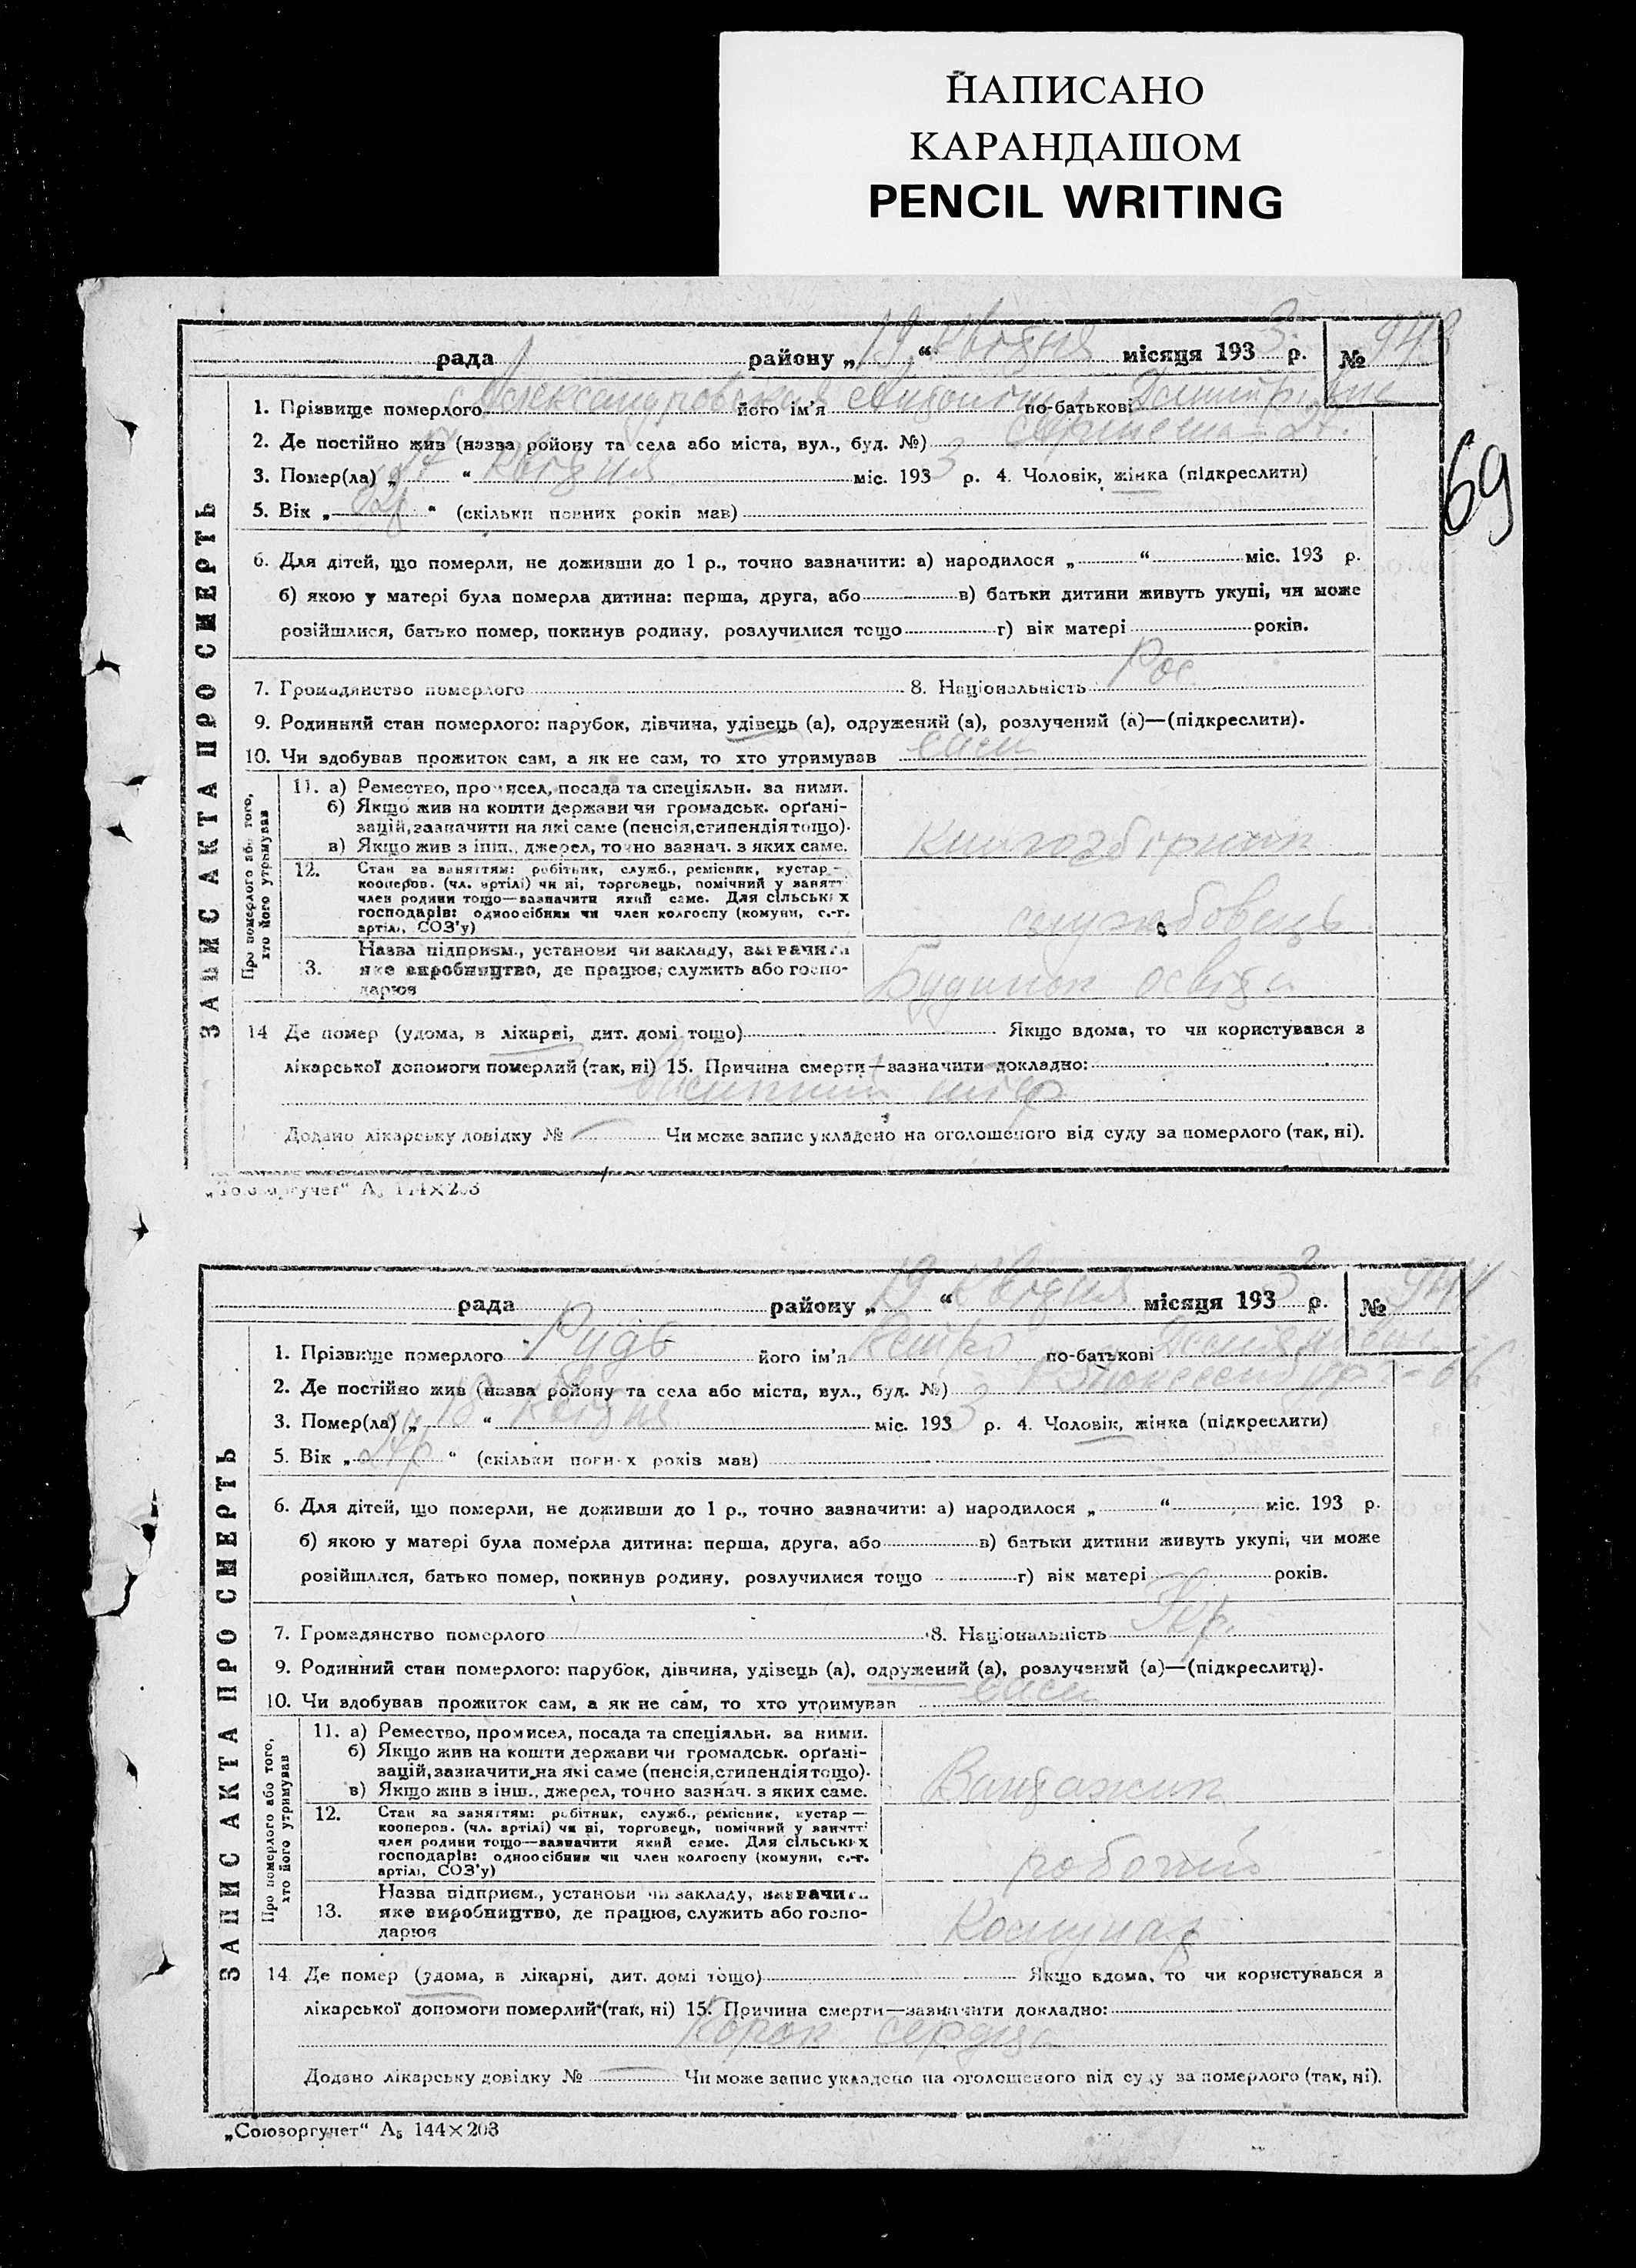 НАПИСАНО
КАРАНДАШОМ
PENCIL WRITING
69
рада району „19“ квітня місяця 1933 р. № 943
1. Прізвище померлого Александровская його ім'я по-батькові
2. Де постійно жив (назва району та села або міста, вул., буд. №)
3. Помер(ла) „17“ квітня міс. 1933 р. 4. Чоловік, жінка (підкреслити)
5. Вік „ “ (скільки повних років мав)
6. Для дітей, що померли, не доживши до 1 р., точно зазначити: а) народилося „ “ міс. 193 р.
б) якою у матері була померла дитина: перша, друга, або в) батьки дитини живуть укупі, чи може
розійшлися, батько помер, покинув родину, розлучилися тощо г) вік матері років.
7. Громадянство померлого 8. Національність Рос
9. Родинний стан померлого: парубок, дівчина, удівець (а), одружений (а), розлучений (а)—(підкреслити).
10. Чи здобував прожиток сам, а як не сам, то хто утримував сам
ЗАПИС АКТА ПРО СМЕРТЬ
Про померлого або того,
хто його утримував
11. а) Ремество, промисел, посада та спеціяльн. за ними.
б) Якщо жив на кошти держави чи громадськ. орґані-
зацій, зазначити на які саме (пенсія, стипендія тощо).
в) Якщо жив з інш., джерел, точно зазнач. з яких саме.
Книгозбірник
12. Стан за заняттям: робітник, служб., ремісник, кустар—
кооперов. (чл. артілі) чи ні, торговець, помічний у занятті
член родини тощо—зазначити який саме. Для сільських
господарів: одноосібник чи член колгоспу (комуни, с.-г.
артілі, СОЗ'у)
службовець
13. Назва підприєм., установи чи закладу, зазначити
яке виробництво, де працює, служить або госпо-
дарює
Будинок освіти
14 Де помер (удома, в лікарні, дит. домі тощо) Якщо вдома, то чи користувався з
лікарської допомоги померлий (так, ні) 15. Причина смерти—зазначити докладно:
тиф
Додано лікарську довідку № Чи може запис укладено на оголошеного від суду за померлого (так, ні).
„Союзоргучет“ А₅ 144×203
рада району „19“ квітня місяця 1933 р. № 944
1. Прізвище померлого Рудь його ім'я Петро по-батькові
2. Де постійно жив (назва району та села або міста, вул., буд. №)
3. Помер(ла) „18“ квітня міс. 1933 р. 4. Чоловік, жінка (підкреслити)
5. Вік „ “ (скільки повних років мав)
6. Для дітей, що померли, не доживши до 1 р., точно зазначити: а) народилося „ “ міс. 193 р.
б) якою у матері була померла дитина: перша, друга, або в) батьки дитини живуть укупі, чи може
розійшлися, батько помер, покинув родину, розлучилися тощо г) вік матері років.
7. Громадянство померлого 8. Національність Укр.
9. Родинний стан померлого: парубок, дівчина, удівець (а), одружений (а), розлучений (а)—(підкреслити).
10. Чи здобував прожиток сам, а як не сам, то хто утримував сам
ЗАПИС АКТА ПРО СМЕРТЬ
Про померлого або того,
хто його утримував
11. а) Ремество, промисел, посада та спеціяльн. за ними.
б) Якщо жив на кошти держави чи громадськ. орґані-
зацій, зазначити на які саме (пенсія, стипендія тощо).
в) Якщо жив з інш., джерел, точно зазнач. з яких саме.
Вантажник
12. Стан за заняттям: робітник, служб., ремісник, кустар—
кооперов. (чл. артілі) чи ні, торговець, помічний у занятті
член родини тощо—зазначити який саме. Для сільських
господарів: одноосібник чи член колгоспу (комуни, с.-г.
артілі, СОЗ'у)
робочий
13. Назва підприєм., установи чи закладу, зазначити
яке виробництво, де працює, служить або госпо-
дарює
Комунар
14 Де помер (удома, в лікарні, дит. домі тощо) Якщо вдома, то чи користувався з
лікарської допомоги померлий (так, ні) 15. Причина смерти—зазначити докладно:
Порок сердця
Додано лікарську довідку № Чи може запис укладено на оголошеного від суду за померлого (так, ні).
„Союзоргучет“ А₅ 144×203